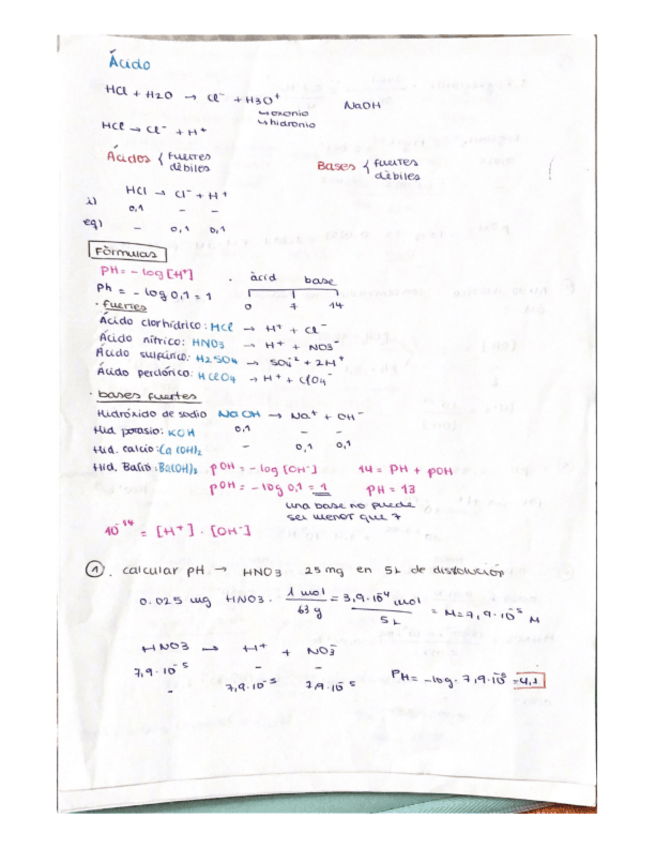 Ácido
HCl + H2O → Cl⁻ + H3O⁺
↳ oxonio
↳ hidronio
NaOH
HCl → Cl⁻ + H⁺
Ácidos { fuertes
débiles
Bases { fuertes
débiles
HCl → Cl⁻ + H⁺
i) 0,1 - -
eq) - 0,1 0,1
Fórmulas
PH = - log [H⁺]
Ph = - log 0,1 = 1
· àcid base
0 7 14
· fuertes
Ácido clorhídrico: HCl → H⁺ + Cl⁻
Ácido nítrico: HNO3 → H⁺ + NO3⁻
Ácido sulfúrico: H2SO4 → SO4⁻² + 2H⁺
Ácido perclórico: HClO4 → H⁺ + ClO4⁻
· bases fuertes
Hidróxido de sodio NaOH → Na⁺ + OH⁻
Hid. potasio: KOH 0,1 - -
Hid. calcio: Ca(OH)2 - 0,1 0,1
Hid. Bario: Ba(OH)2 pOH = - log [OH⁻] 14 = PH + pOH
pOH = - log 0,1 = 1 PH = 13
una base no puede
ser menor que 7
10⁻¹⁴ = [H⁺] · [OH⁻]
① . calcular pH → HNO3 25 mg en 5L de disolución
0.025 mg HNO3 · 1 mol / 63 g = 3,9·10⁻⁴ mol / 5L = M = 7,9·10⁻⁵ M
HNO3 → H⁺ + NO3⁻
7,9·10⁻⁵ - -
- 7,9·10⁻⁵ 7,9·10⁻⁵ PH = -log · 7,9·10⁻⁵ = 4,1